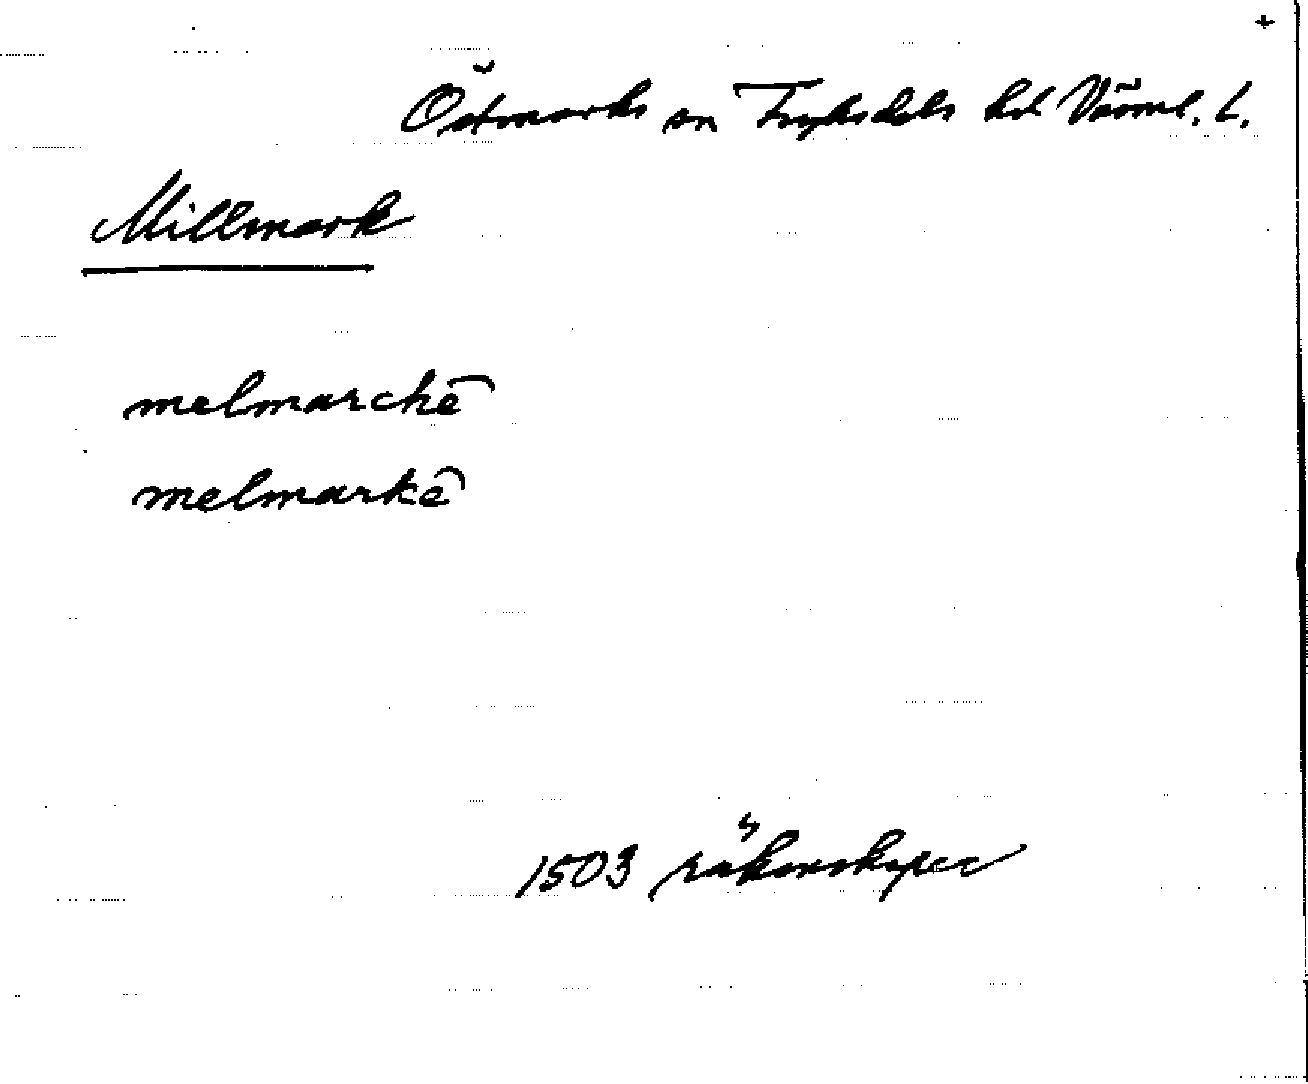 +
Östmarks sn Fryksdals hd Värml. L.
Millmark
melmarchē
melmarkē
1503 räkenskaper